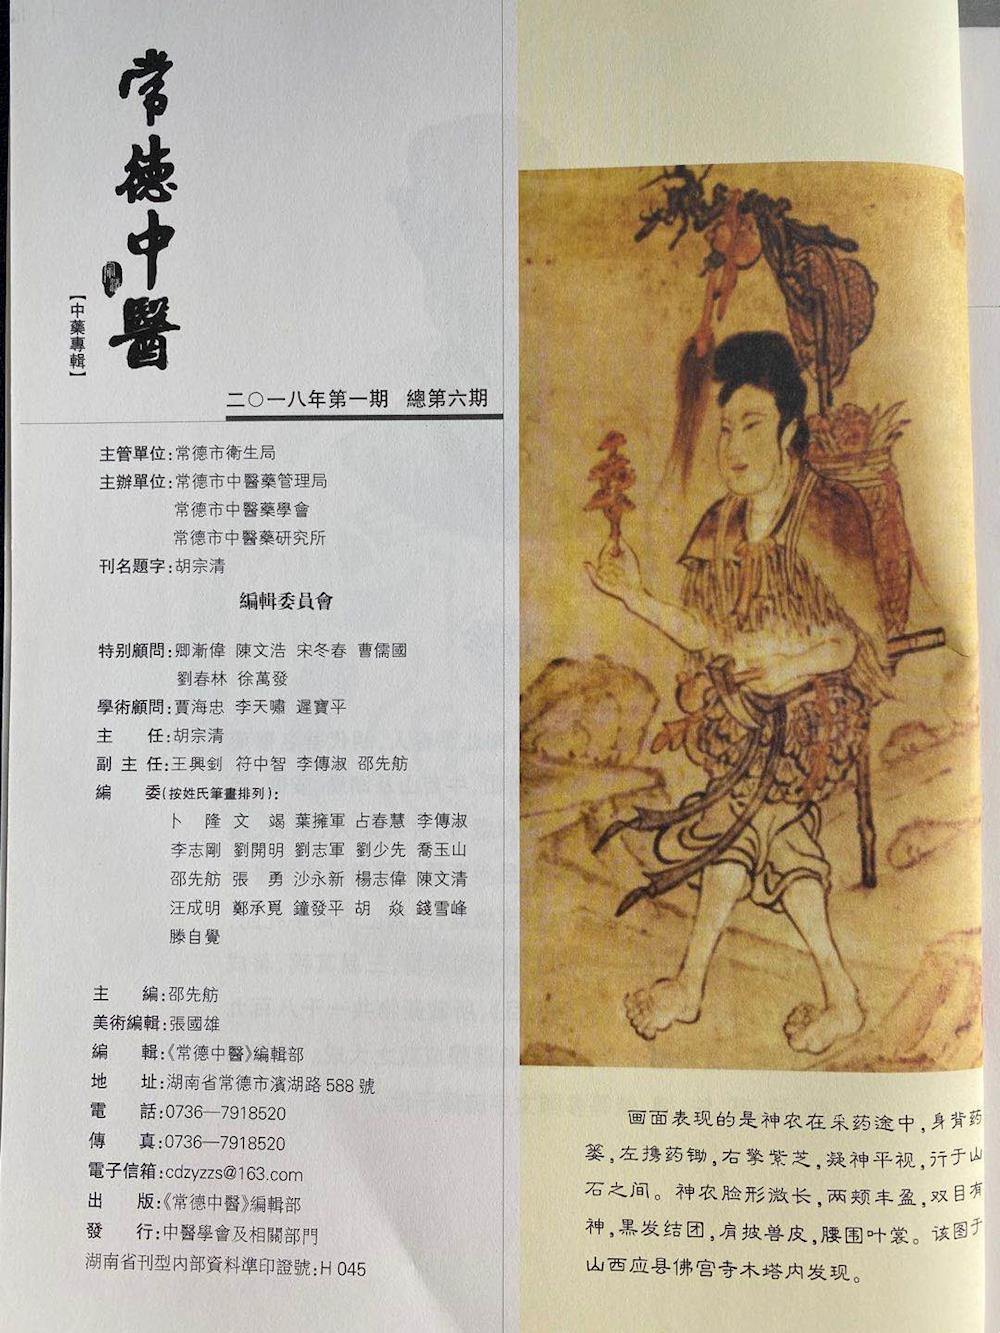 常德中醫
【中藥專輯】
二○一八年第一期 總第六期
主管單位:常德市衛生局
主辦單位:常德市中醫藥管理局
常德市中醫藥學會
常德市中醫藥研究所
刊名題字:胡宗清
編輯委員會
特别顧問:卿漸偉 陳文浩 宋冬春 曹儒國
劉春林 徐萬發
學術顧問:賈海忠 李天嘯 遲寶平
主 任:胡宗清
副 主 任:王興釗 符中智 李傳淑 邵先舫
編 委(按姓氏筆畫排列):
卜 隆 文 竭 葉擁軍 占春慧 李傳淑
李志剛 劉開明 劉志軍 劉少先 喬玉山
邵先舫 張 勇 沙永新 楊志偉 陳文清
汪成明 鄭承覓 鐘發平 胡 焱 錢雪峰
滕自覺
主 編:邵先舫
美術編輯:張國雄
編 輯:《常德中醫》編輯部
地 址:湖南省常德市濱湖路 588 號
電 話:0736—7918520
傳 真:0736—7918520
電子信箱:cdzyzzs@163.com
出 版:《常德中醫》編輯部
發 行:中醫學會及相關部門
湖南省刊型内部資料準印證號:H 045
画面表现的是神农在采药途中,身背药
篓,左携药锄,右擎紫芝,凝神平视,行于山
石之间。神农脸形微长,两颊丰盈,双目有
神,黑发结团,肩披兽皮,腰围叶裳。该图于
山西应县佛宫寺木塔内发现。